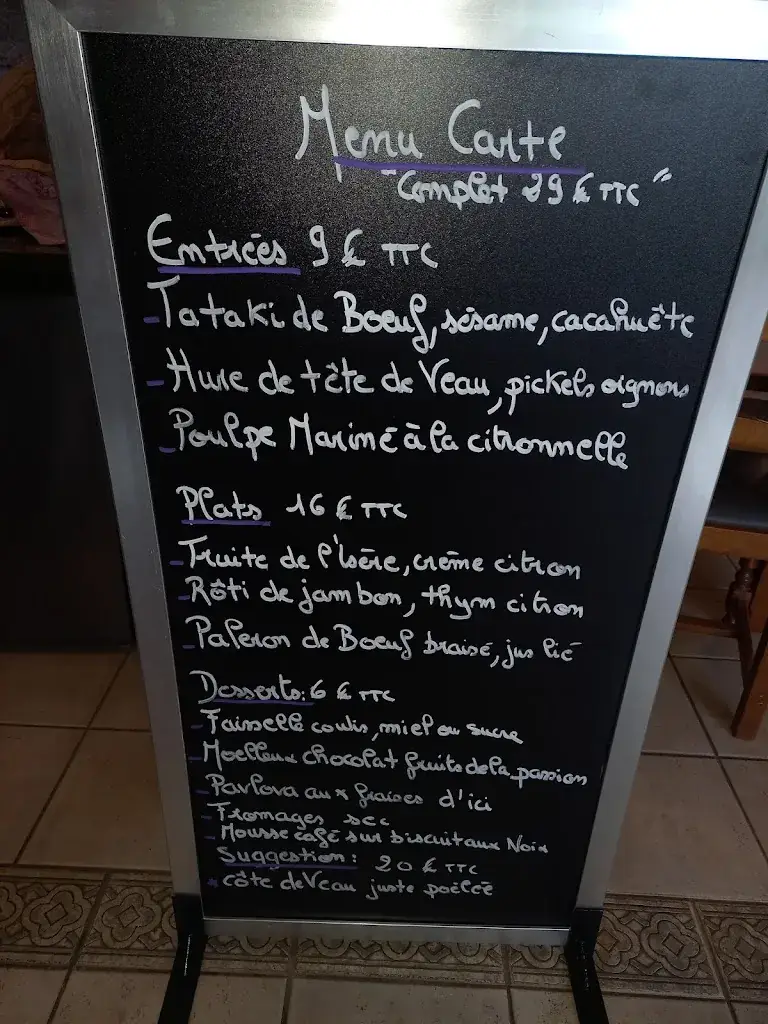 Menu Carte
"Complet 29 € TTC"
Entrées 9 € TTC
- Tataki de Boeuf, sésame, cacahuête
- Hure de tête de Veau, pickels oignons
- Poulpe Mariné à la citronnelle
Plats 16 € TTC
- Truite de l'Isère, crème citron
- Rôti de jambon, thym citron
- Paleron de Boeuf braisé, jus lié
Desserts: 6 € TTC
- Faisselle coulis, miel ou sucre
- Moelleux chocolat fruits de la passion
- Pavlova aux fraises d'ici
- Fromages sec
- Mousse café sur biscuit aux Noix
Suggestion: 20 € TTC
* côte de Veau juste poêlée